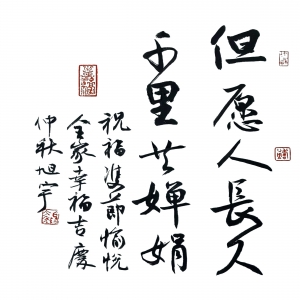 但愿人長久
千里共嬋娟
祝福雙節愉悅
全家幸福吉慶
仲秋旭宇